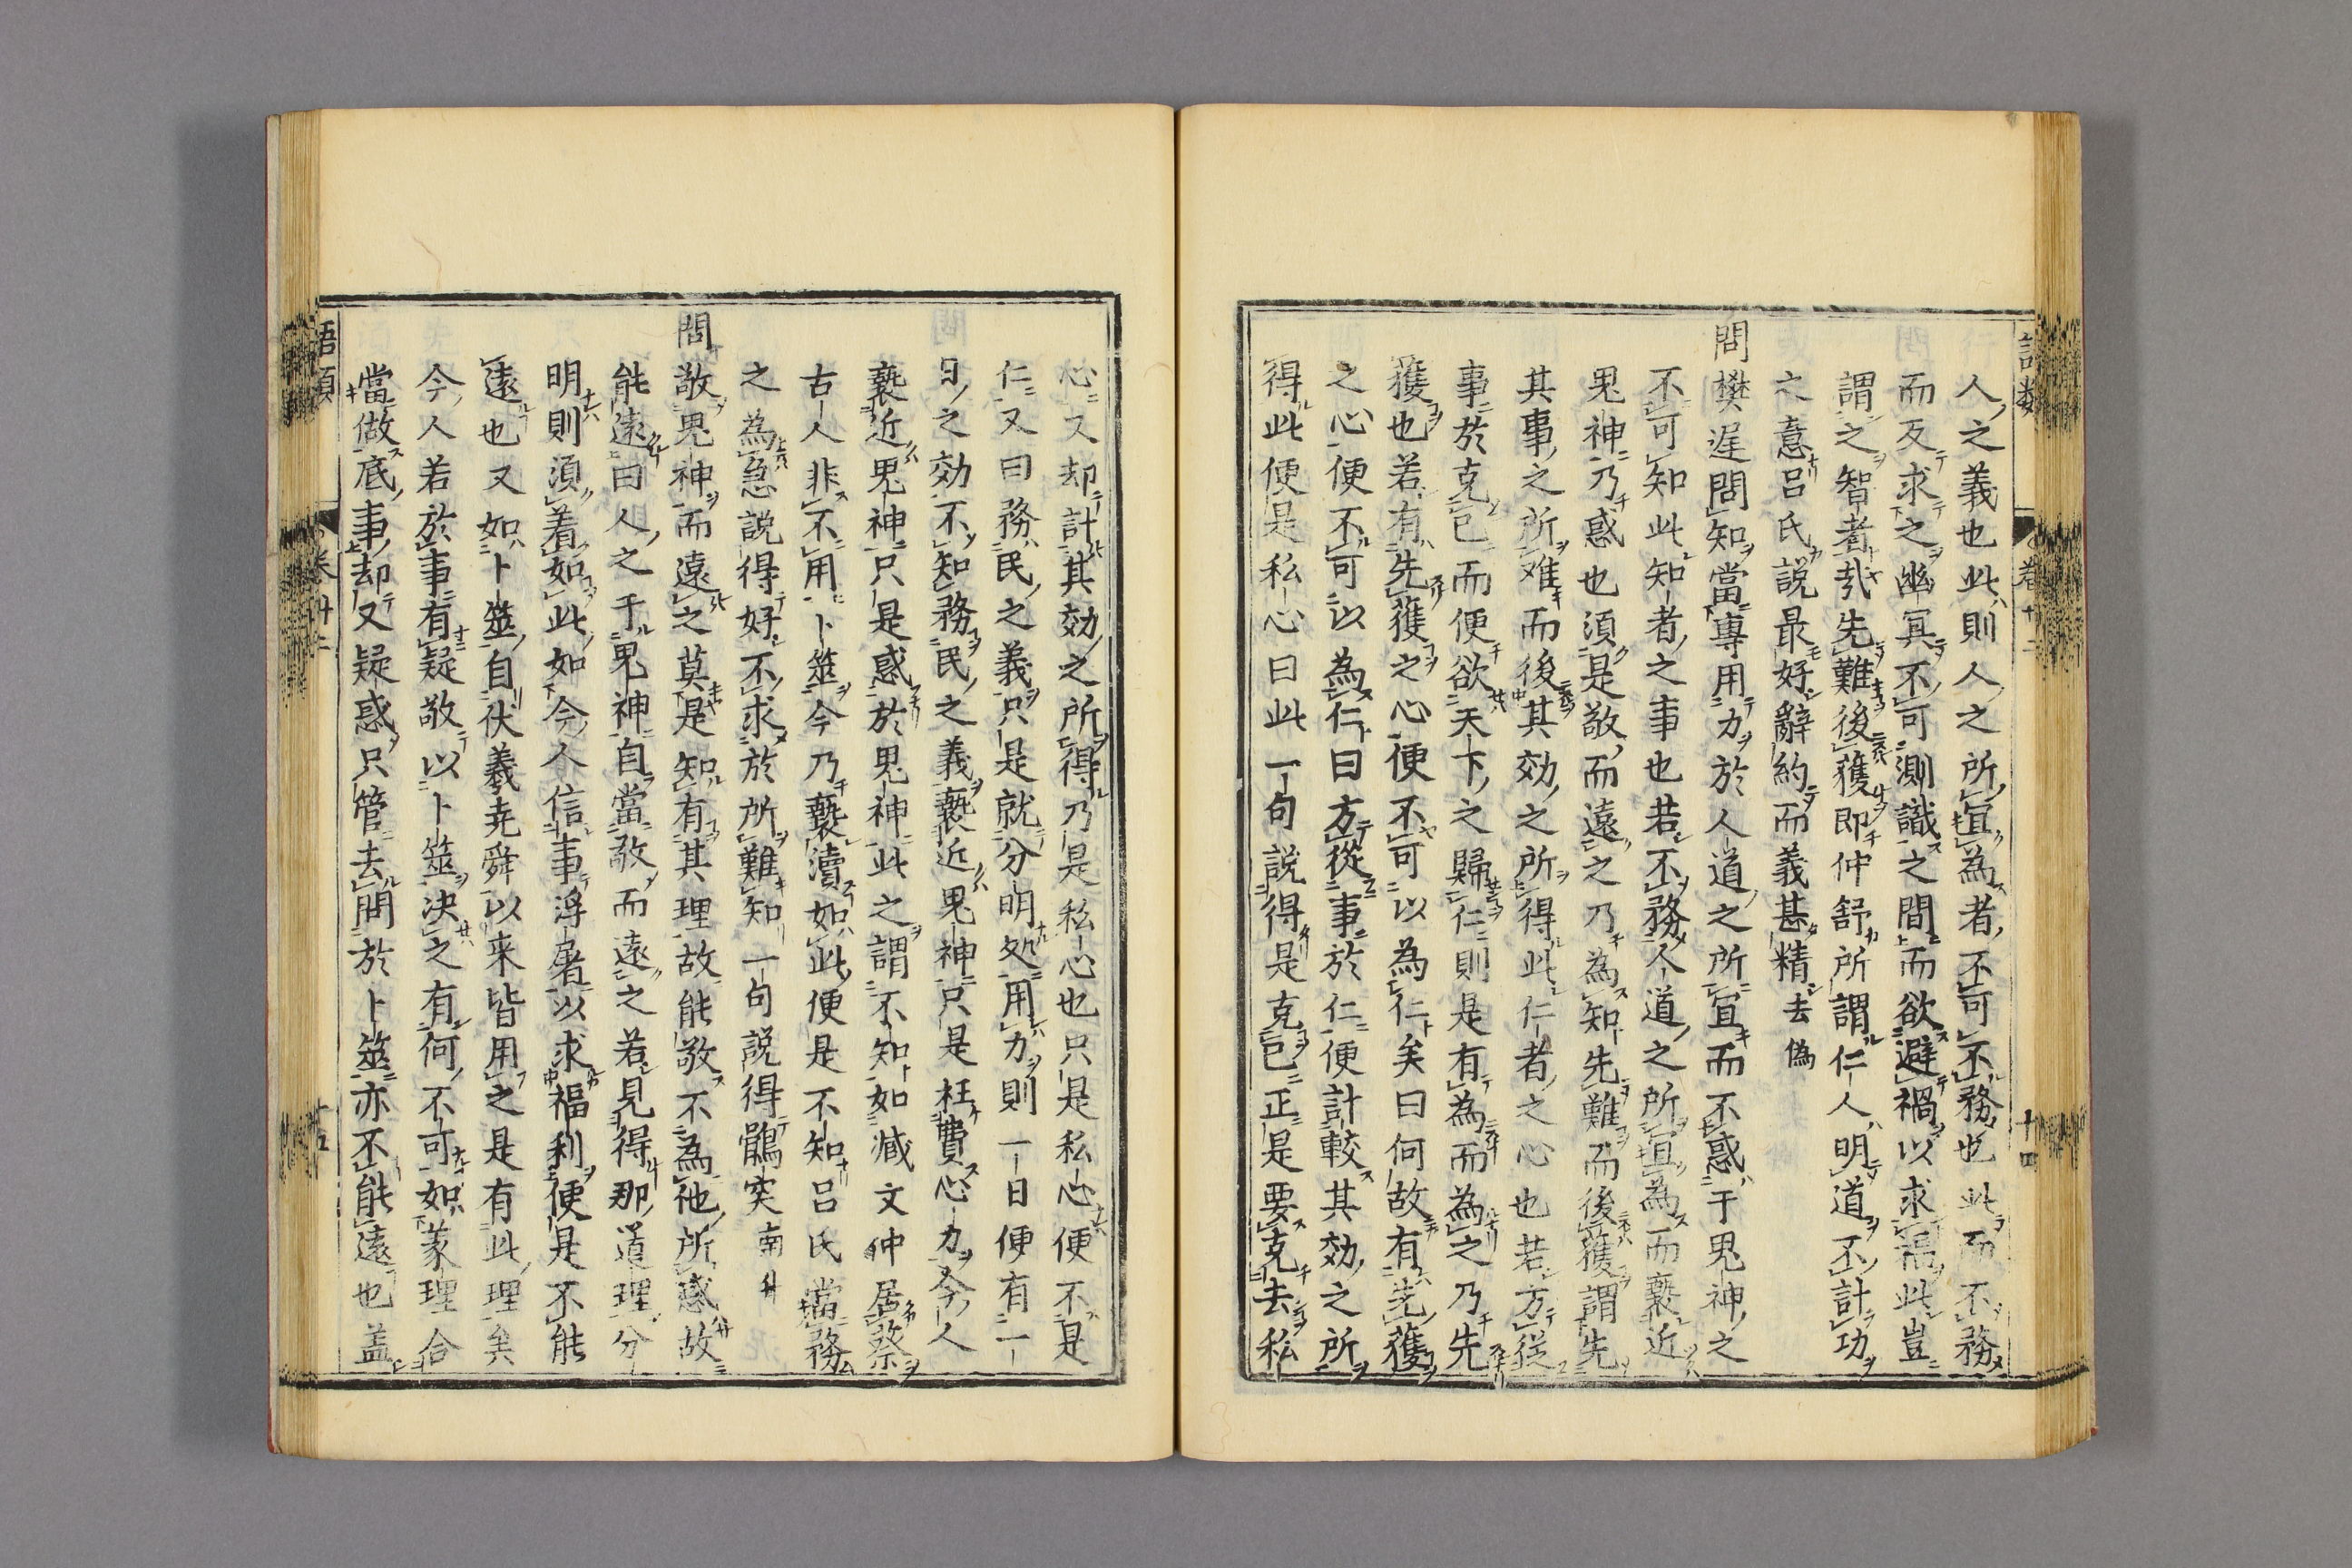 人之義也此則人之所宜為者不可不務也此而不務
而反求之幽冥不可測識之間而欲避禍以求福此豈
謂之智者哉先難後獲即仲舒所謂仁人明道不計功
之意呂氏說最好辭約而義甚精 去偽
問樊遲問知當專用力於人道之所宜而不惑于鬼神之
不可知此知者之事也若不務人道之所宜為而褻近
鬼神乃惑也須是敬而遠之乃為知先難而後獲謂先
其事之所难而後其効之所得此仁者之心也若方從
事於克已而便欲天下之歸仁則是有為而為之乃先
獲也若有先獲之心便不可以為仁矣曰何故有先獲
之心便不可以為仁曰方從事於仁便計較其効之所
得此便是私心曰此一句說得是克已正是要克去私
心又却計其効之所得乃是私心也只是私心便不是
仁又曰務民之義只是就分明処用力則一日便有一
日之効不知務民之義褻近鬼神只是枉費心力今人
褻近鬼神只是惑於鬼神此之謂不知如臧文仲居蔡
古人非不用卜筮今乃褻瀆如此便是不知呂氏當務
之為急說得好不求於所難知一句說得鶻突 南升
問敬鬼神而遠之莫是知有其理故能敬不為他所惑故
能遠曰人之于鬼神自當敬而遠之若見得那道理分
明則須着如此如今人信事浮屠以求福利便是不能
遠也又如卜筮自伏羲尭舜以来皆用之是有此理矣
今人若於事有疑敬以卜筮決之有何不可如義理合
當做底事却又疑惑只管去問於卜筮亦不能遠也蓋
語類 卷卅二 十四